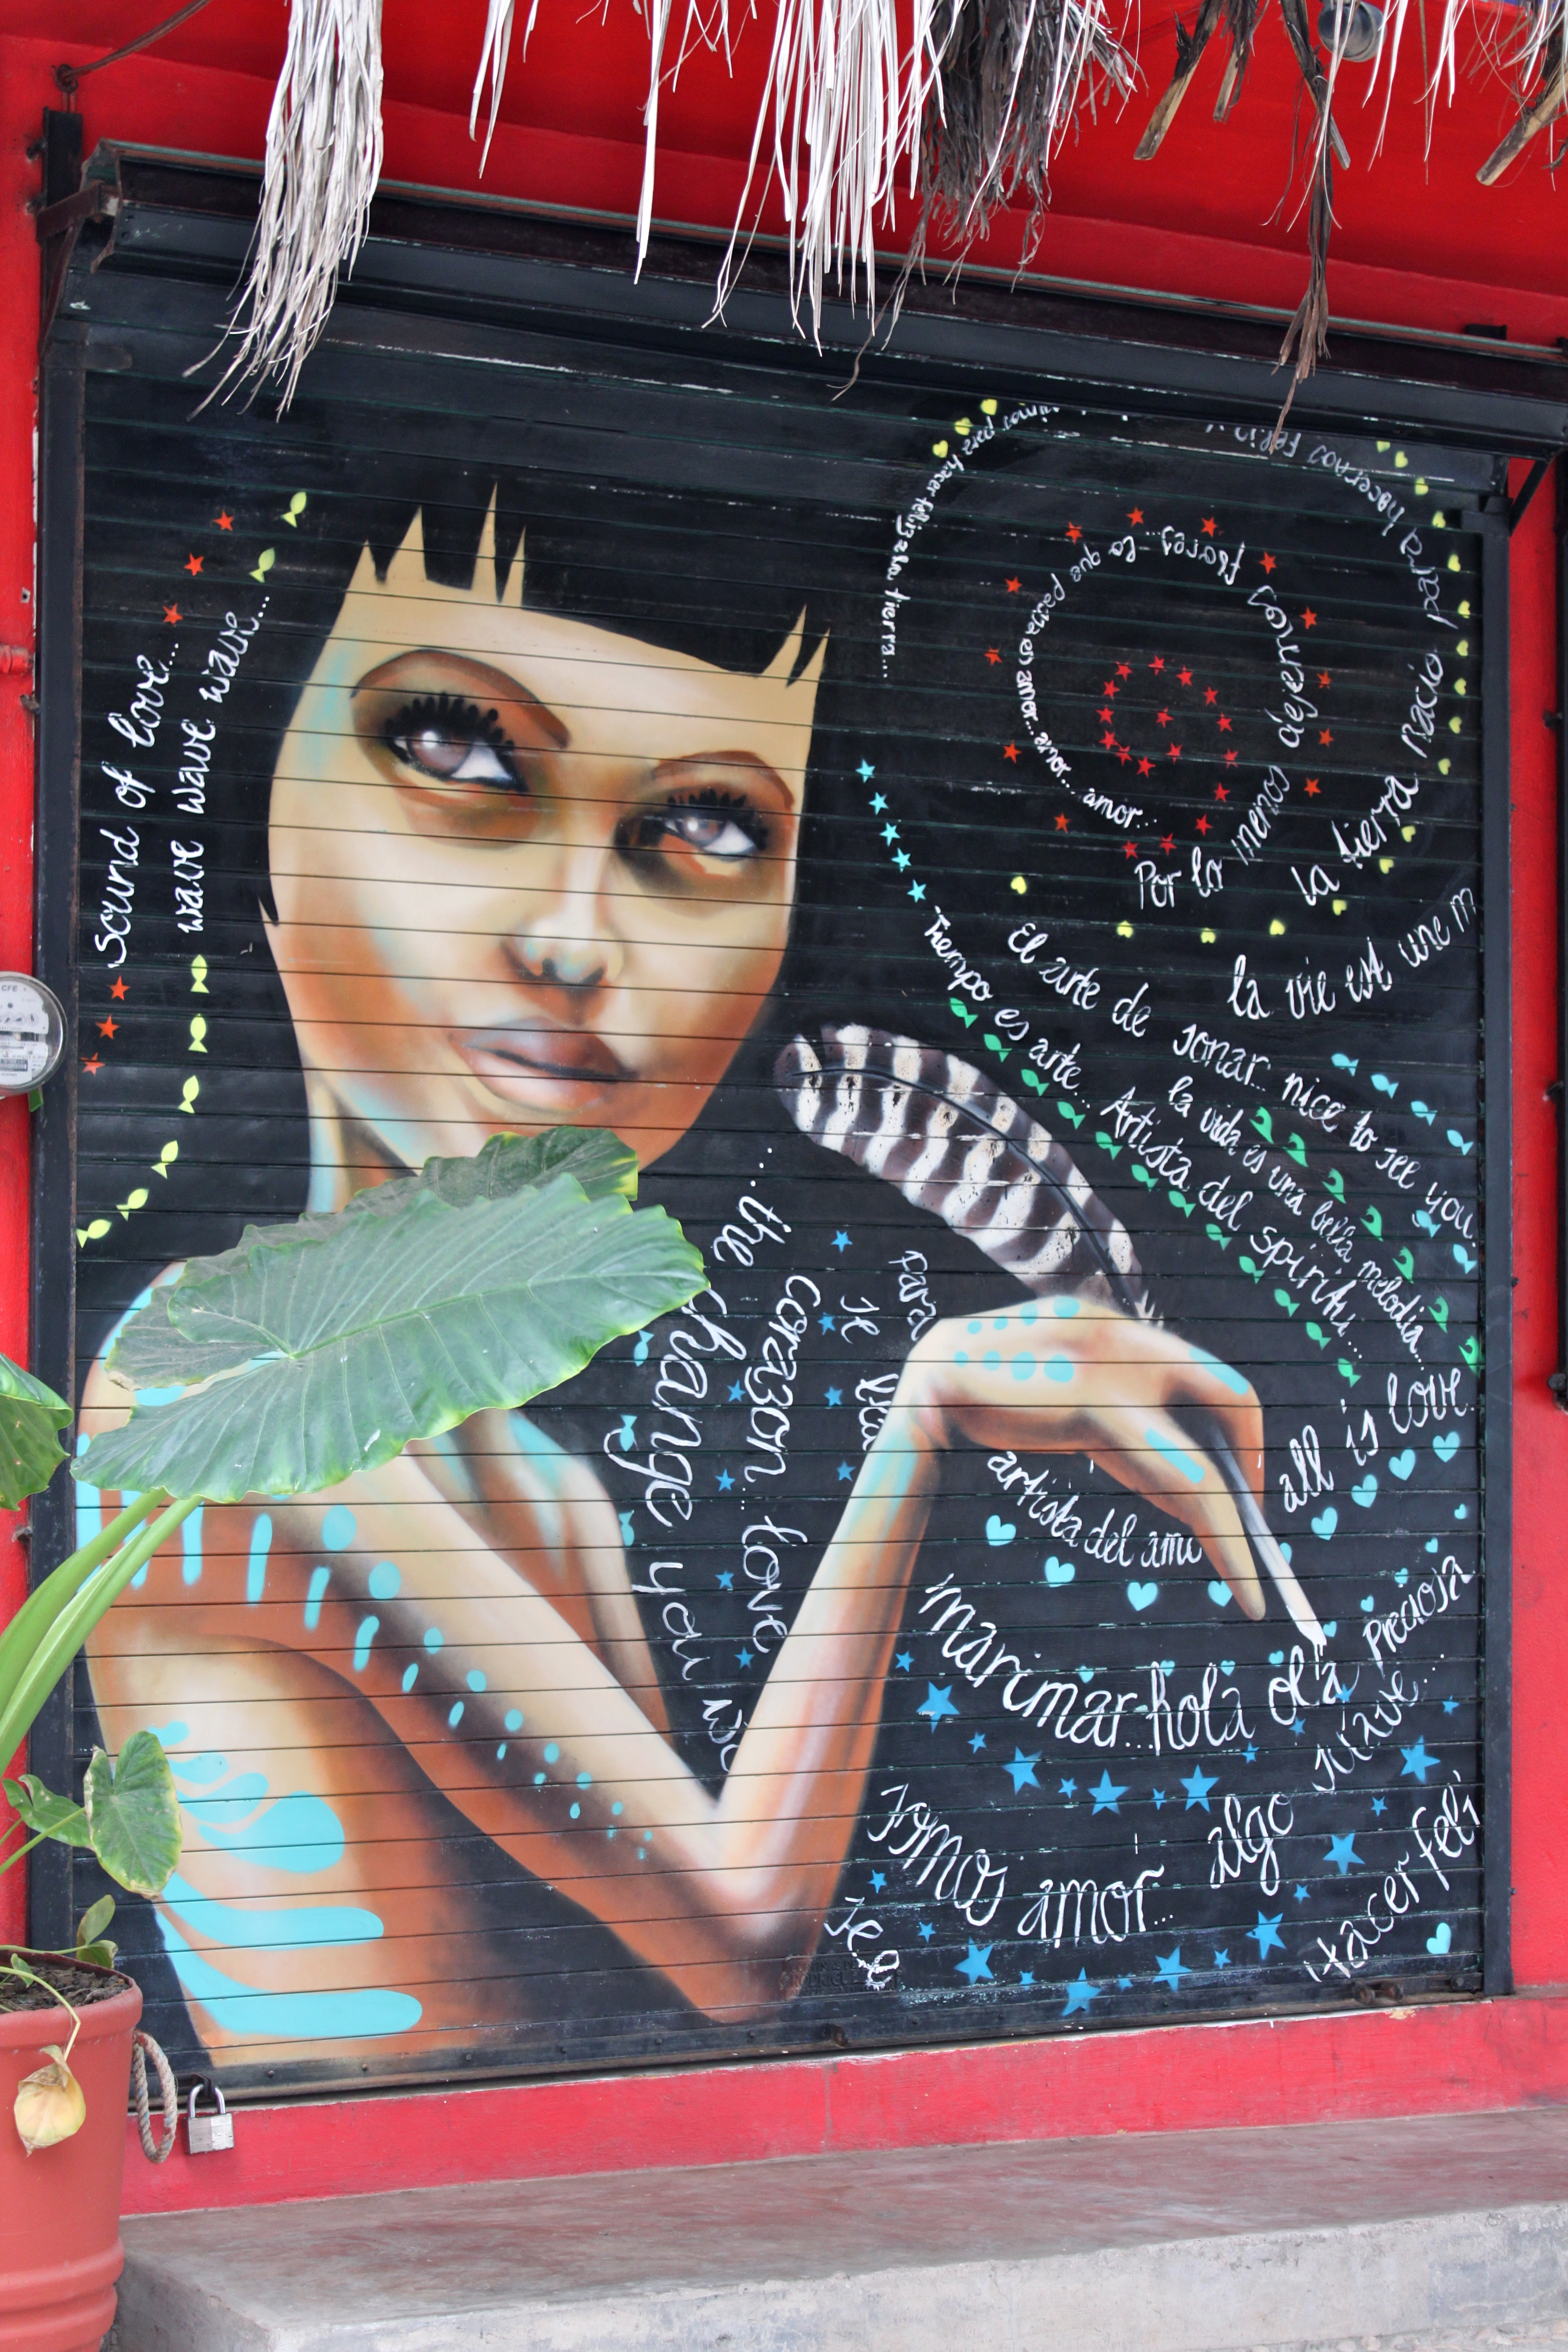 sound of love...
wave wave wave wave...
para hacer feliz a la tierra...
la tierra nació para hacernos feliz
Por lo menos dejemos flores... lo que pasa es amor... amor... amor...
la vie est une m
El arte de sonar... nice to see you.
la vida es una bella melodia...
Tiempo es arte... Artista del spiritu...
all is love.
...the change you
corazon... love
je
para
artista del amu
marimar...hola ola preciosa
somos amor... algo suave...
Hacer feli
CFE